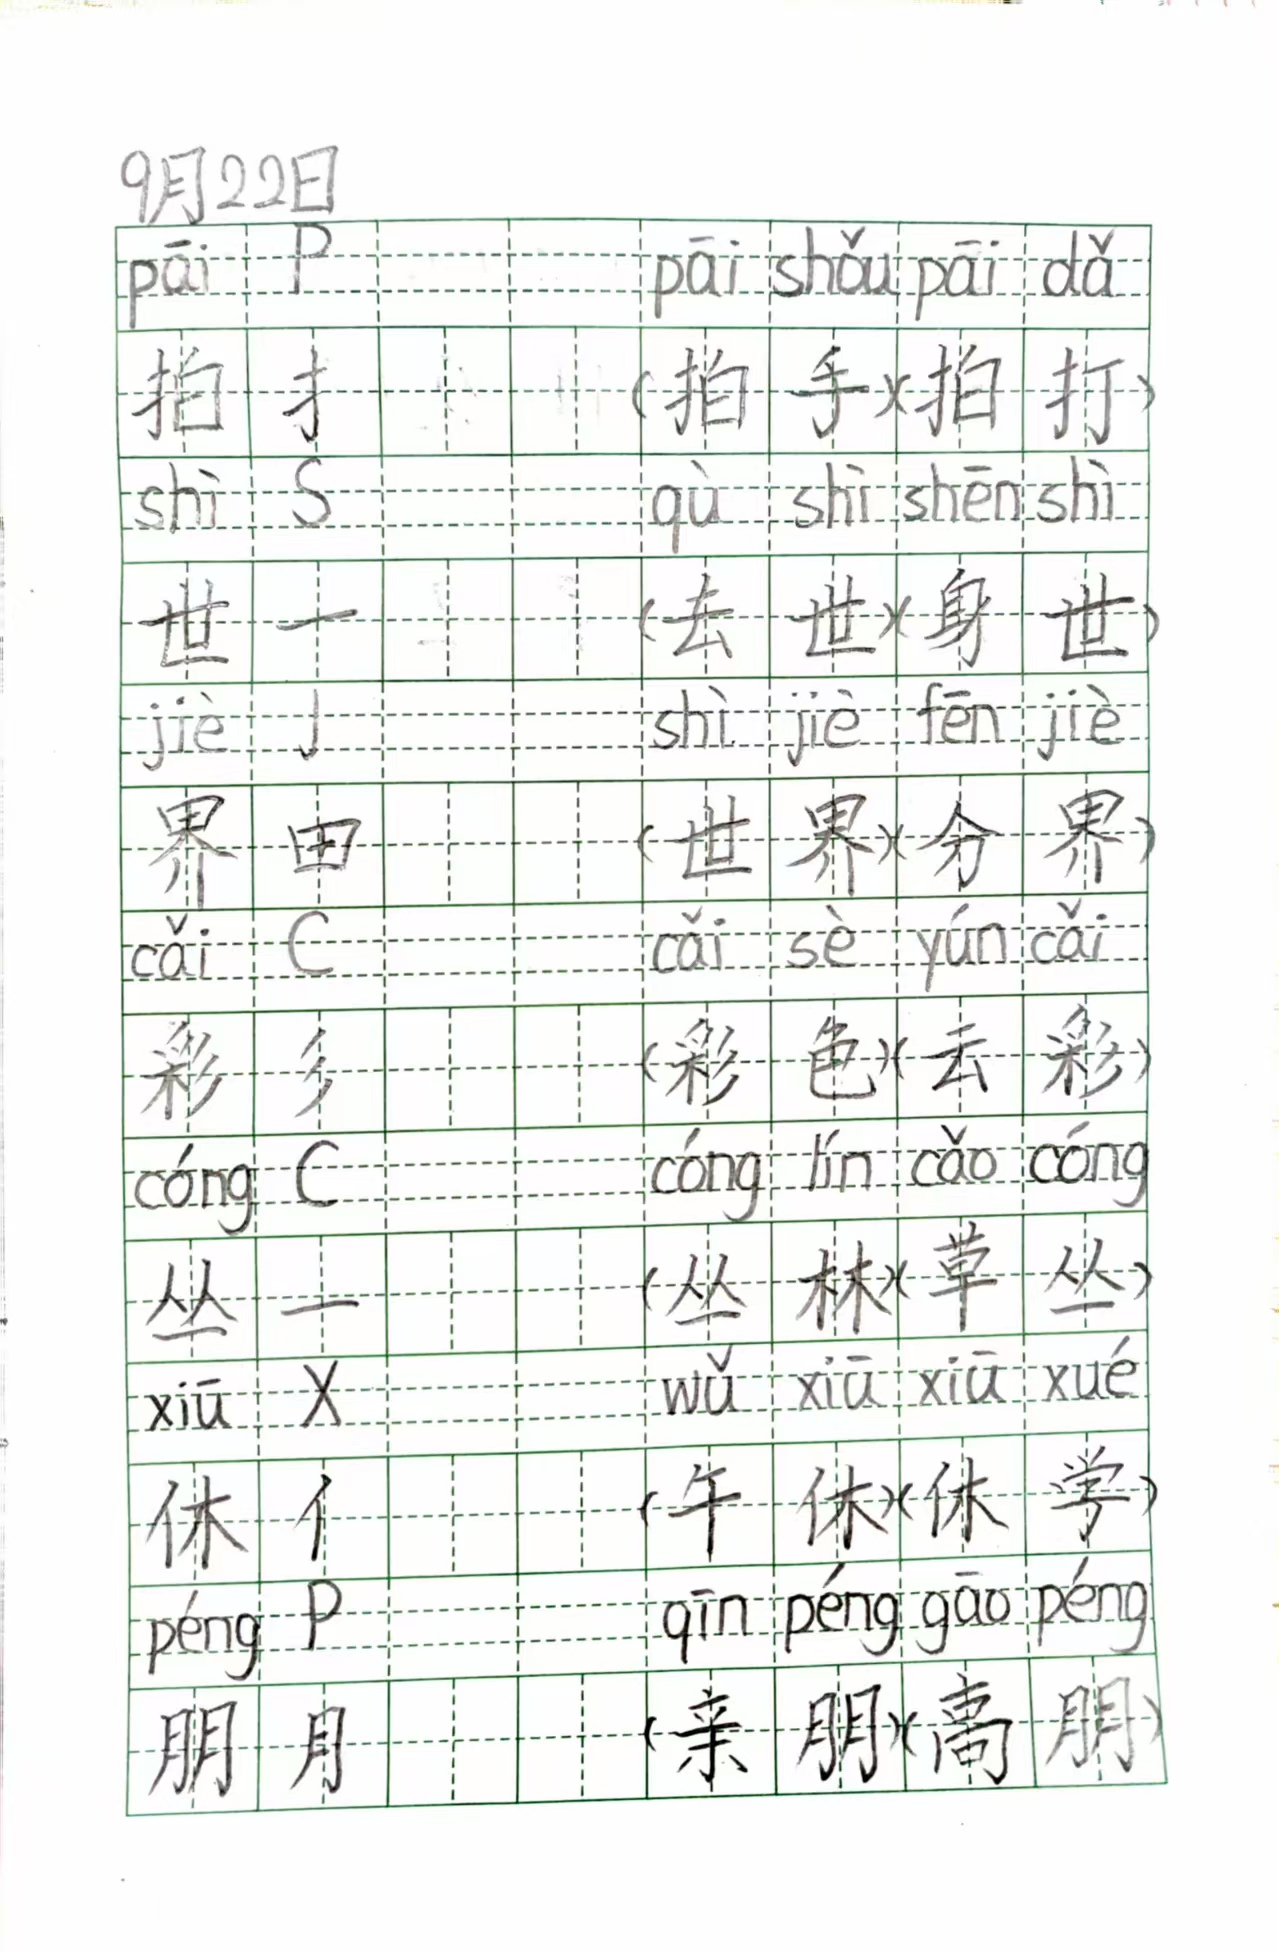 9月22日
pāi P pāi shǒu pāi dǎ
拍 扌 (拍手)(拍打)
shì S qù shì shēn shì
世 一 (去世)(身世)
jiè J shì jiè fēn jiè
界 田 (世界)(分界)
cǎi C cǎi sè yún cǎi
彩 彡 (彩色)(云彩)
cóng C cóng lín cǎo cóng
丛 一 (丛林)(草丛)
xiū X wǔ xiū xiū xué
休 亻 (午休)(休学)
péng P qīn péng gāo péng
朋 月 (亲朋)(高朋)